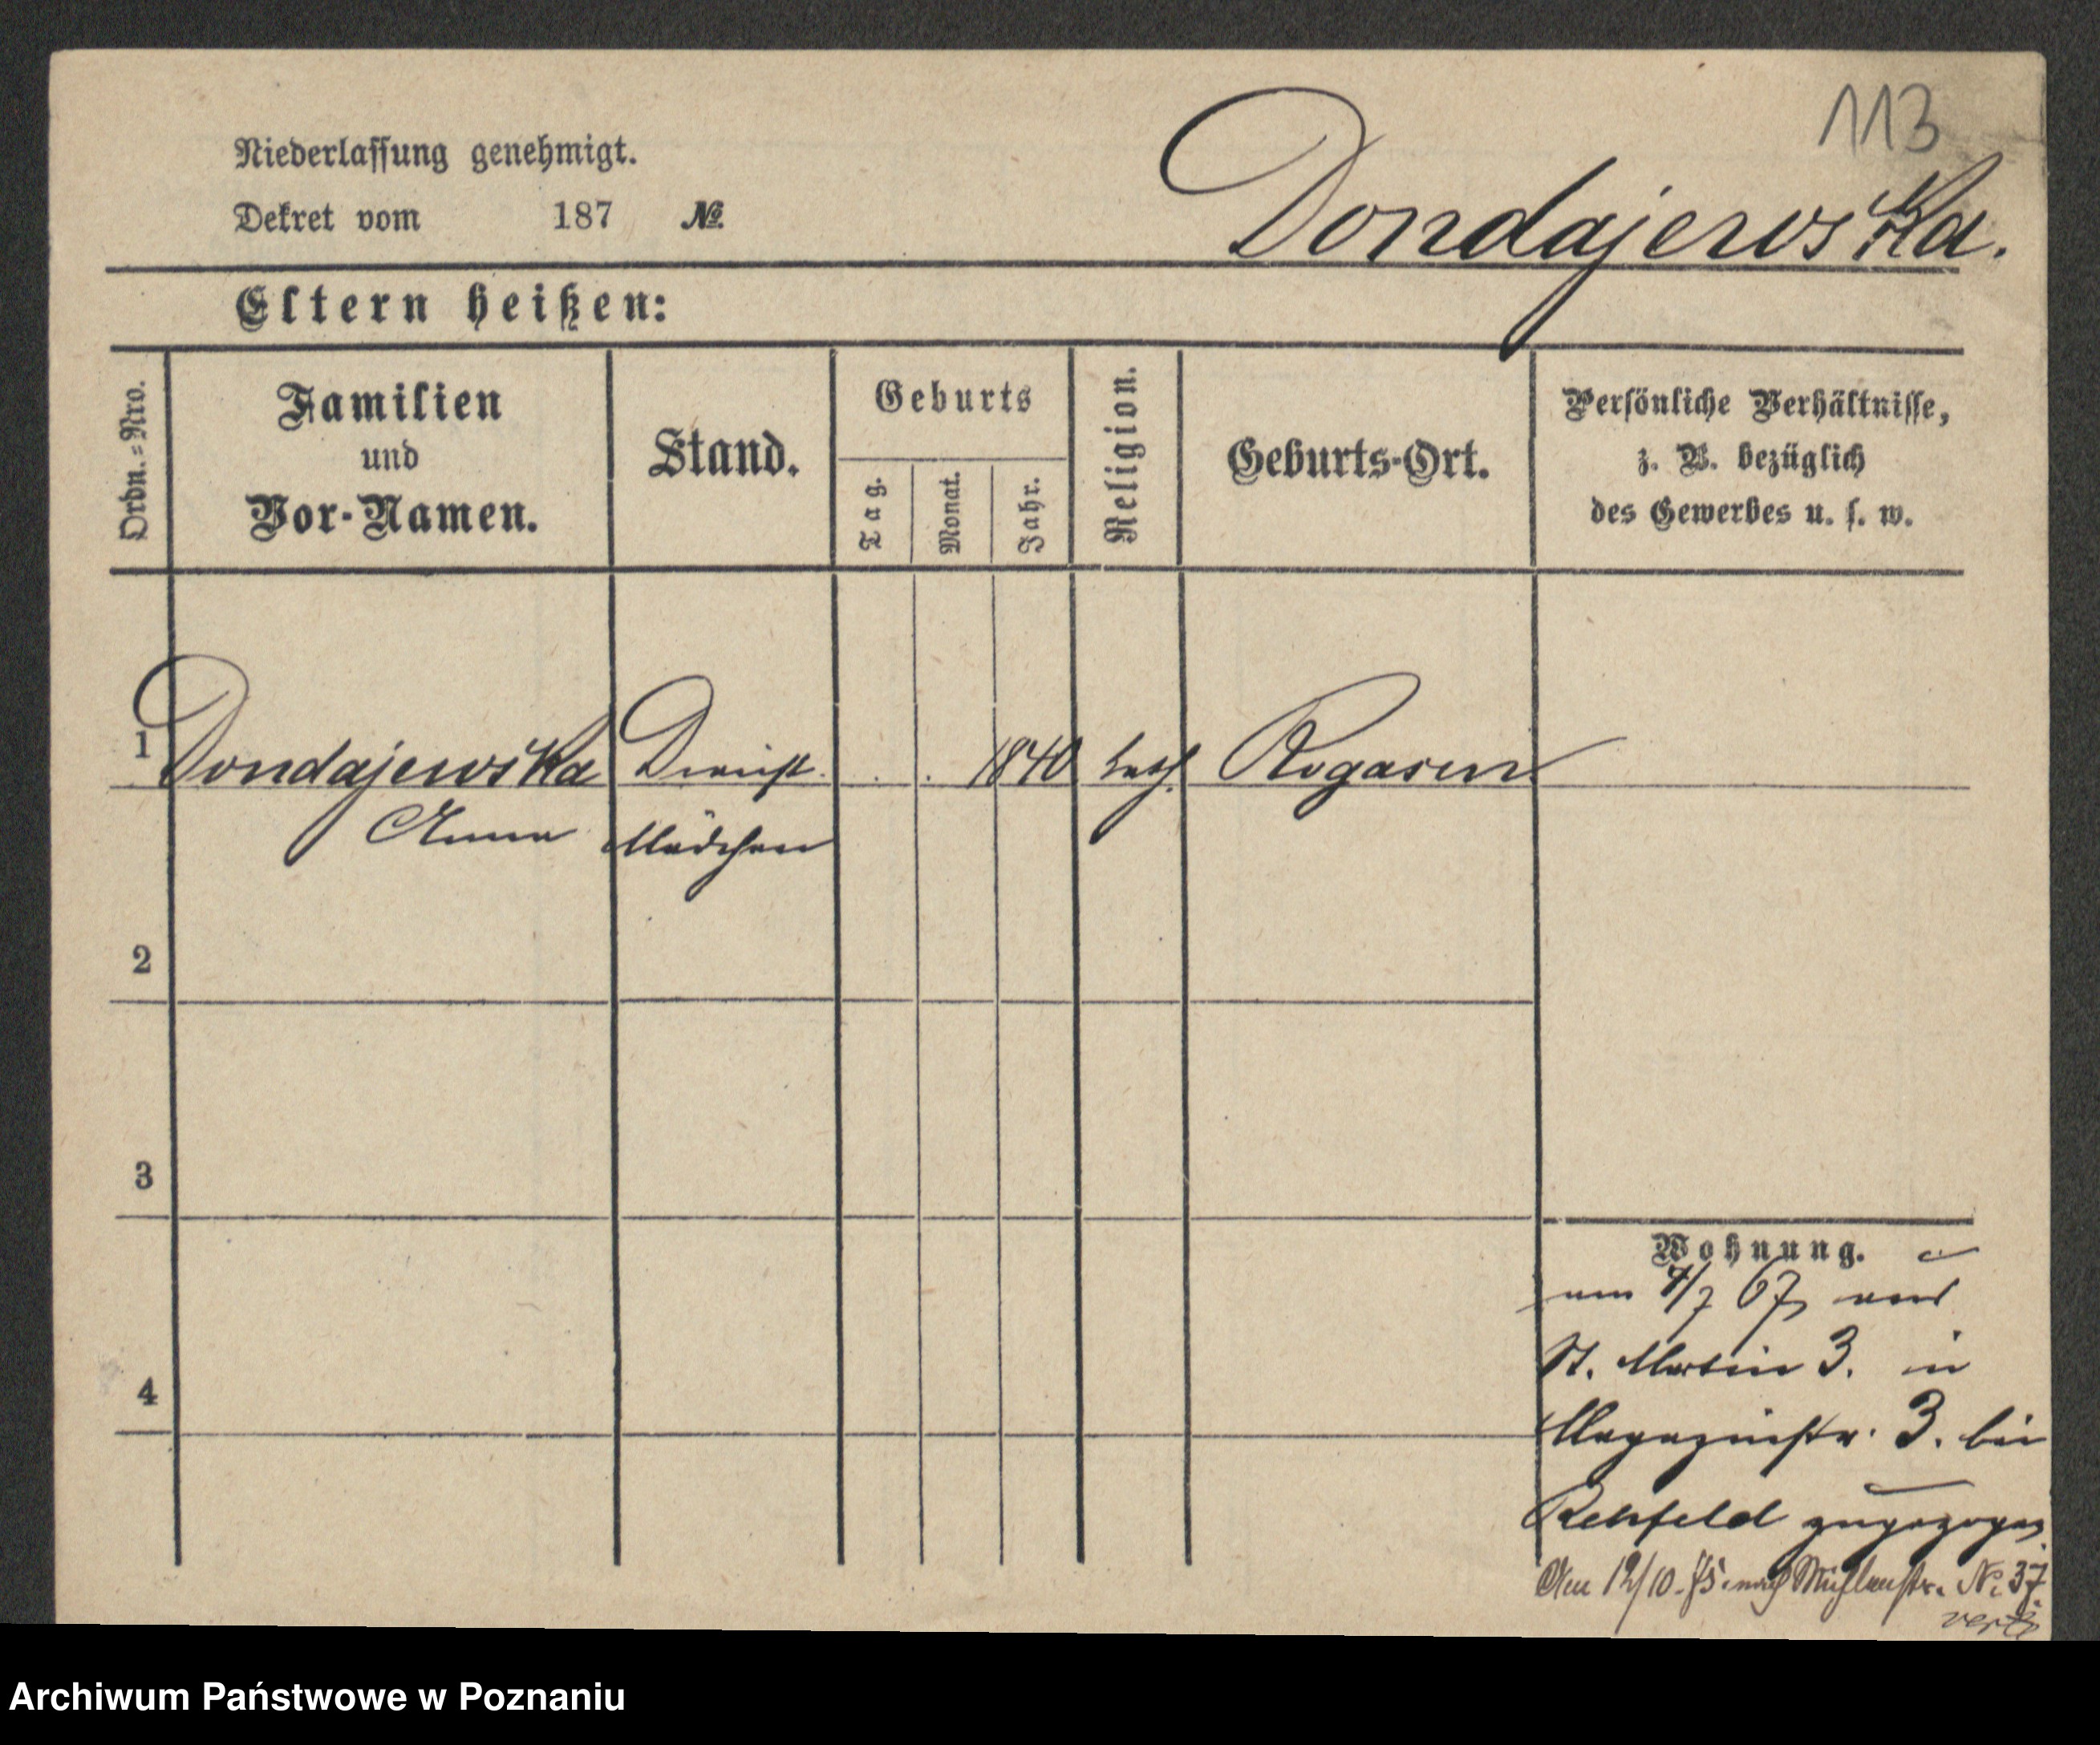 113
Dondajewska.
Niederlassung genehmigt.
Dekret vom 187 №
Eltern heißen:
Ordn.-Nro.
Familien
und
Vor-Namen.
Stand.
Geburts
Tag.
Monat.
Jahr.
Religion.
Geburts-Ort.
Persönliche Verhältnisse,
z. B. bezüglich
des Gewerbes u. s. w.
1 Dondajewska Dienst . . 1840 kath. Rogasen
Anna Mädchen
2
3
4
Wohnung.
am 4/7 67 aus
St. Martin 3. in
Magazinstr. 3. bei
Rehfeld zugezogen
Am 12/10.75. nach Mühlenstr. No 37
Archiwum Państwowe w Poznaniu